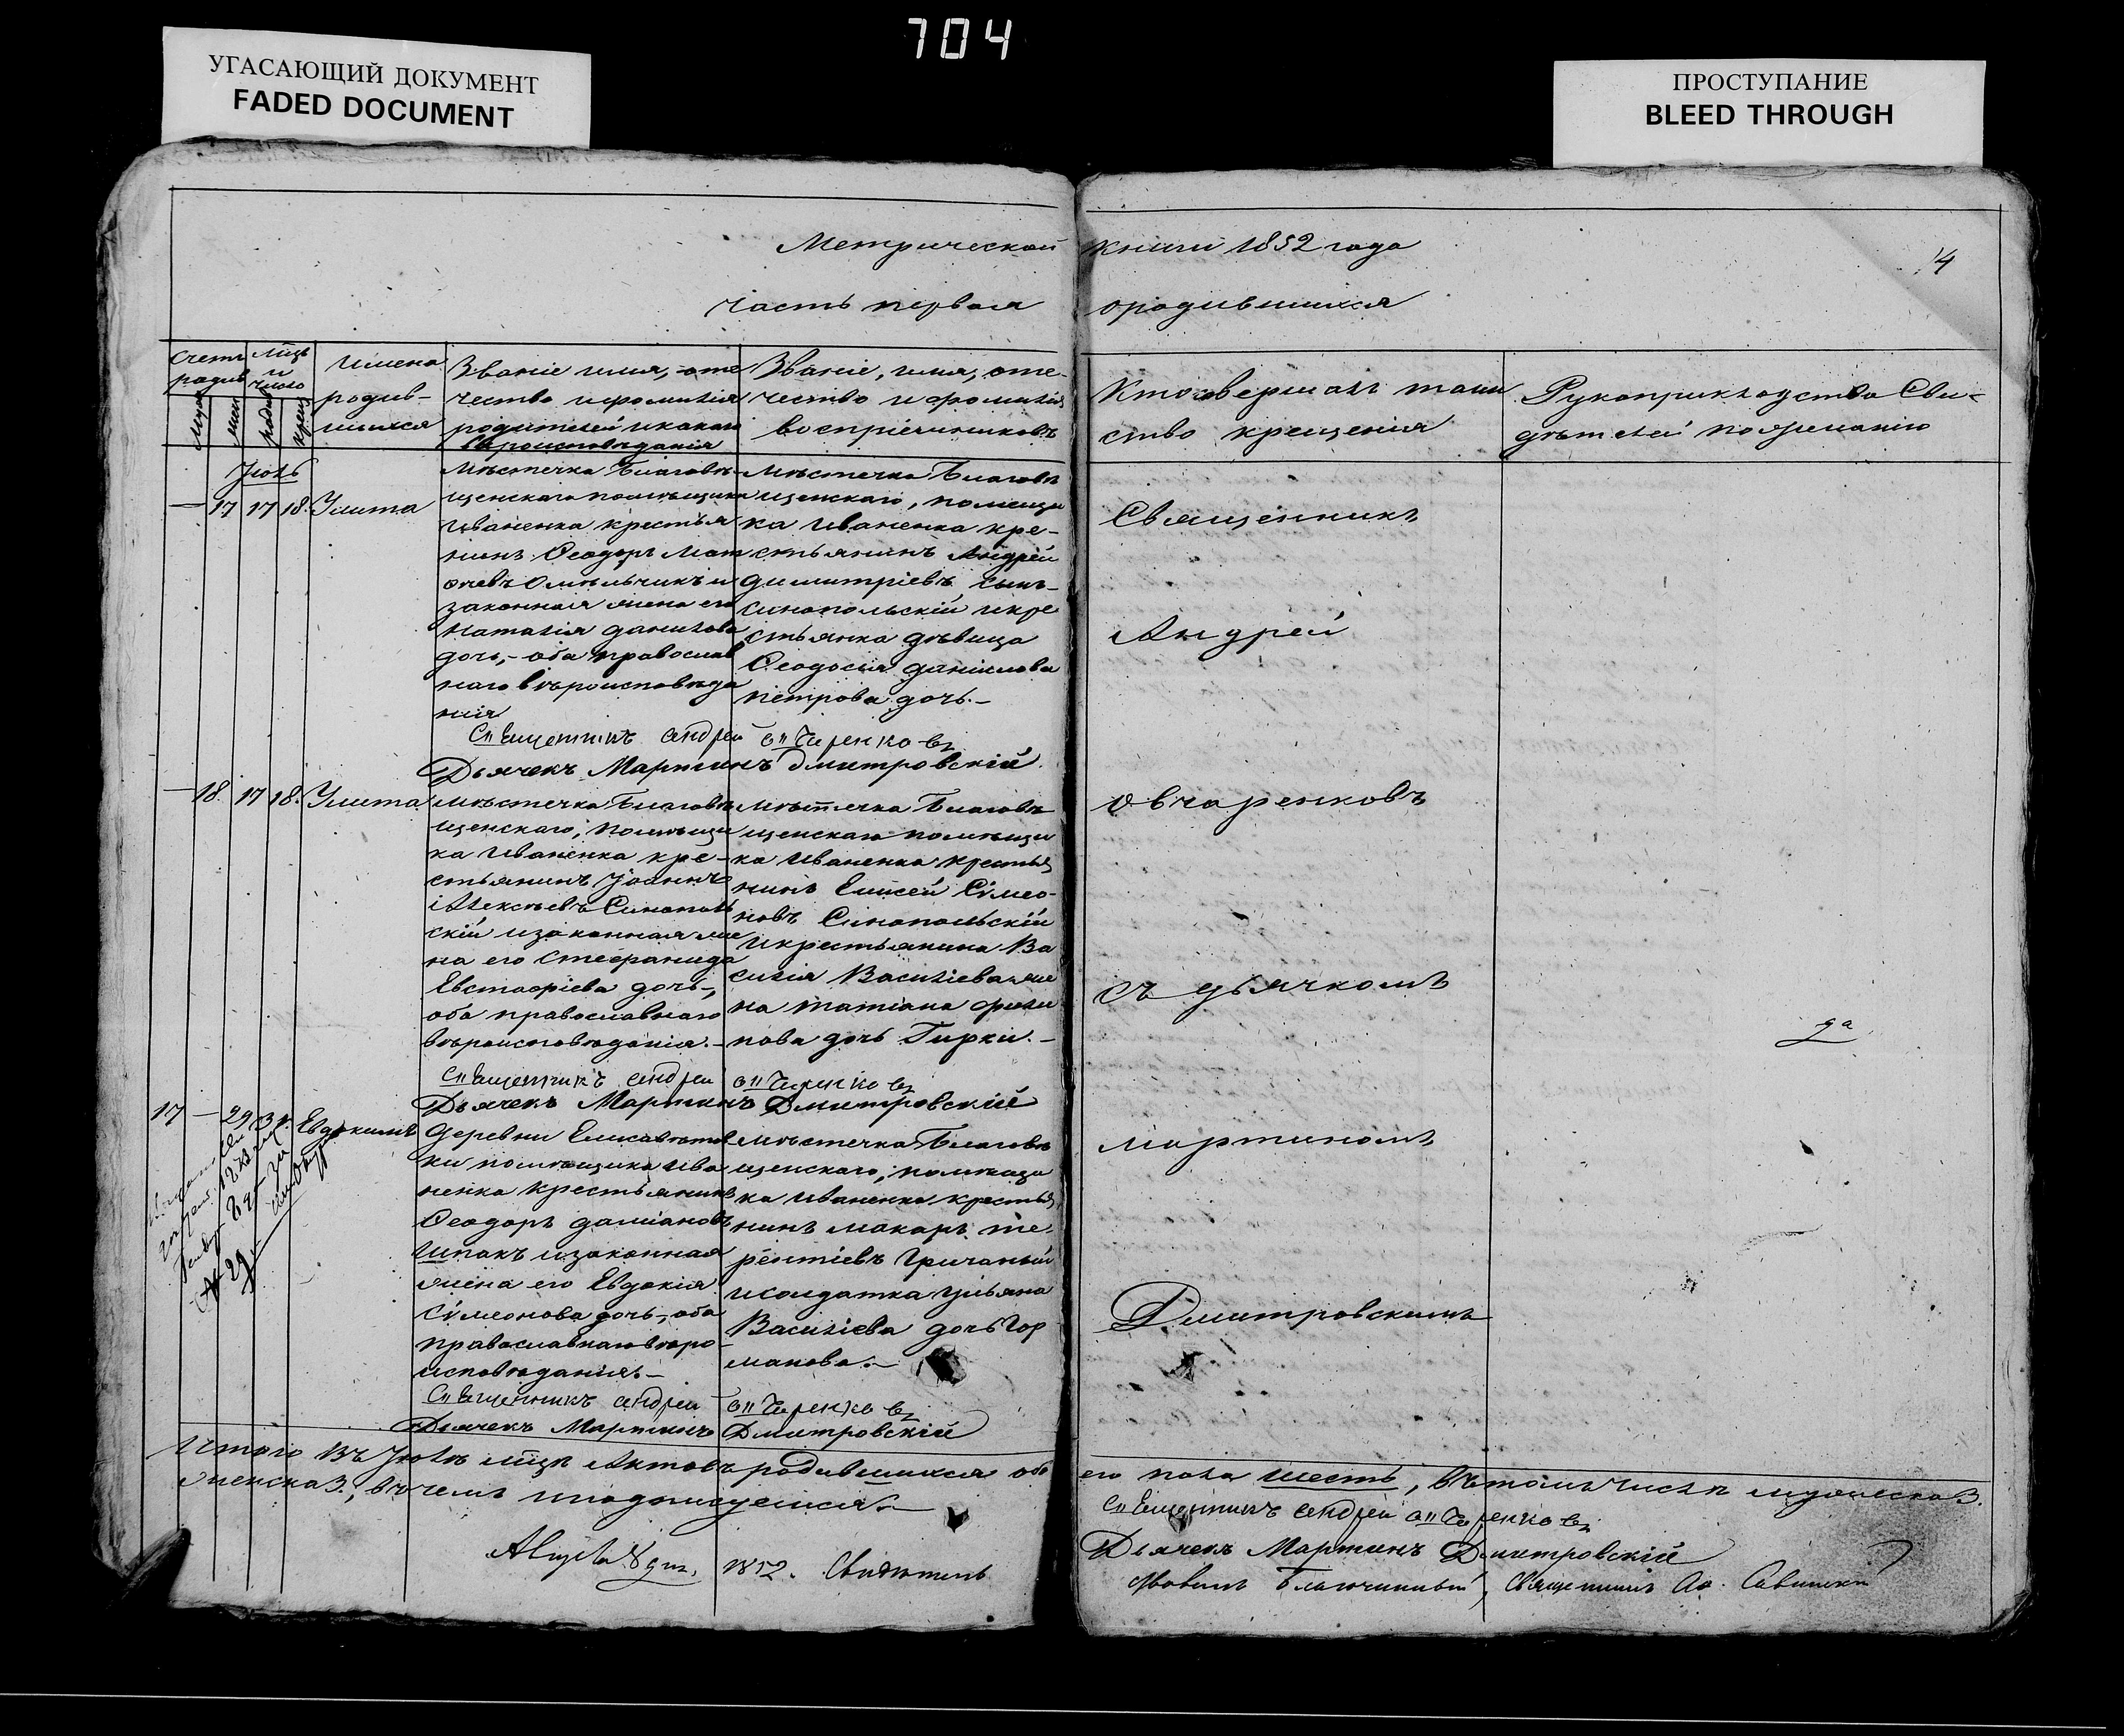 704
УГАСАЮЩИЙ ДОКУМЕНТ
FADED DOCUMENT
ПРОСТУПАНИЕ
BLEED THROUGH
Метрической книги 1852 года
14
часть первая о родившихся
Счетъ родив
муж
жен
мсцъ и число
рожд
крещ
Имена
родив-
шихся
Званіе имя, оте
чество и фамилія
родителей и какого
вероисповѣданія
Званіе, имя, оте-
чество и фамилія
воспріемниковъ
Кто совершалъ таин
ство крещенія
Рукоприкладство Сви-
дѣтелей по желанію
Іюль
— 17 17 18. Улита
мѣстечка Благовѣ-
щенскаго помѣщика
Иваненка крестья
нинъ Ѳеодоръ Мат
ѳеевъ Омельчикъ и
законная жена его
Наталія Данилова
дочь,- оба православ
наго вѣроисповѣда
нія
мѣстечка Благовѣ
щенскаго, помещи
ка Иваненка кре-
стьянинъ Андрей
Димитріевъ сынъ-
Синопольскій и кре
стьянка дѣвица
Ѳеодосія Даніилова
Петрова дочь.-
Священникъ Андрей Овчаренковъ
Дьячекъ Мартинъ Дмитровскій.
— 18. 17 18. Улита
мѣстечка Благовѣ
щенскаго, помѣщи
ка Иваненка кре-
стьянинъ Іоаннъ
Алексѣевъ Синополь
скій и законная же
на его Стефанида
Евстафіева дочь-,
оба православнаго
вѣроисповѣданія.-
мѣстечка Благовѣ
щенскаго помѣщи
ка Иваненка крестья
нинъ Елисей Сѵмео-
новъ Синопольскій
и крестьянина Ва
силія Василіева же
на Татіана Фили
пова дочь Гирки.-
Священникъ Андрей Овчаренковъ
Дьячекъ Мартинъ Дмитровскій
17 — 29 31. Евдокимъ
Деревни Елисаветов
ки помѣщика Ива
ненка крестьянинъ
Ѳеодоръ Даміановъ
Шпакъ и законная
жена его Евдокія
Сѵмеонова дочь-, оба
православнаго вѣро
исповѣданія-
мѣстечка Благовѣ
щенскаго, помѣщи
ка Иваненка крестья
нинъ Макаръ Те-
рентіевъ Гричаный
и солдатка Уліяна
Василіева дочь Гор
манова.-
№ 29.
Священникъ Андрей Овчаренковъ
Дьячекъ Мартинъ Дмитровскій
Священникъ
Андрей
Овчаренковъ
съ дьячкомъ
Мартиномъ
Дмитровскимъ
да
Итого въ Іюлѣ мсцѣ актовъ родившихся обо его пола шесть, въ томъ числѣ мужеска 3.
женска 3., въ чемъ и подписуемся.-
Священникъ Андрей Овчаренковъ
Дьячекъ Мартинъ Дмитровскій
Августа 8 дня, 1852. Свидѣтель
Благочинный, Священникъ Савинскій